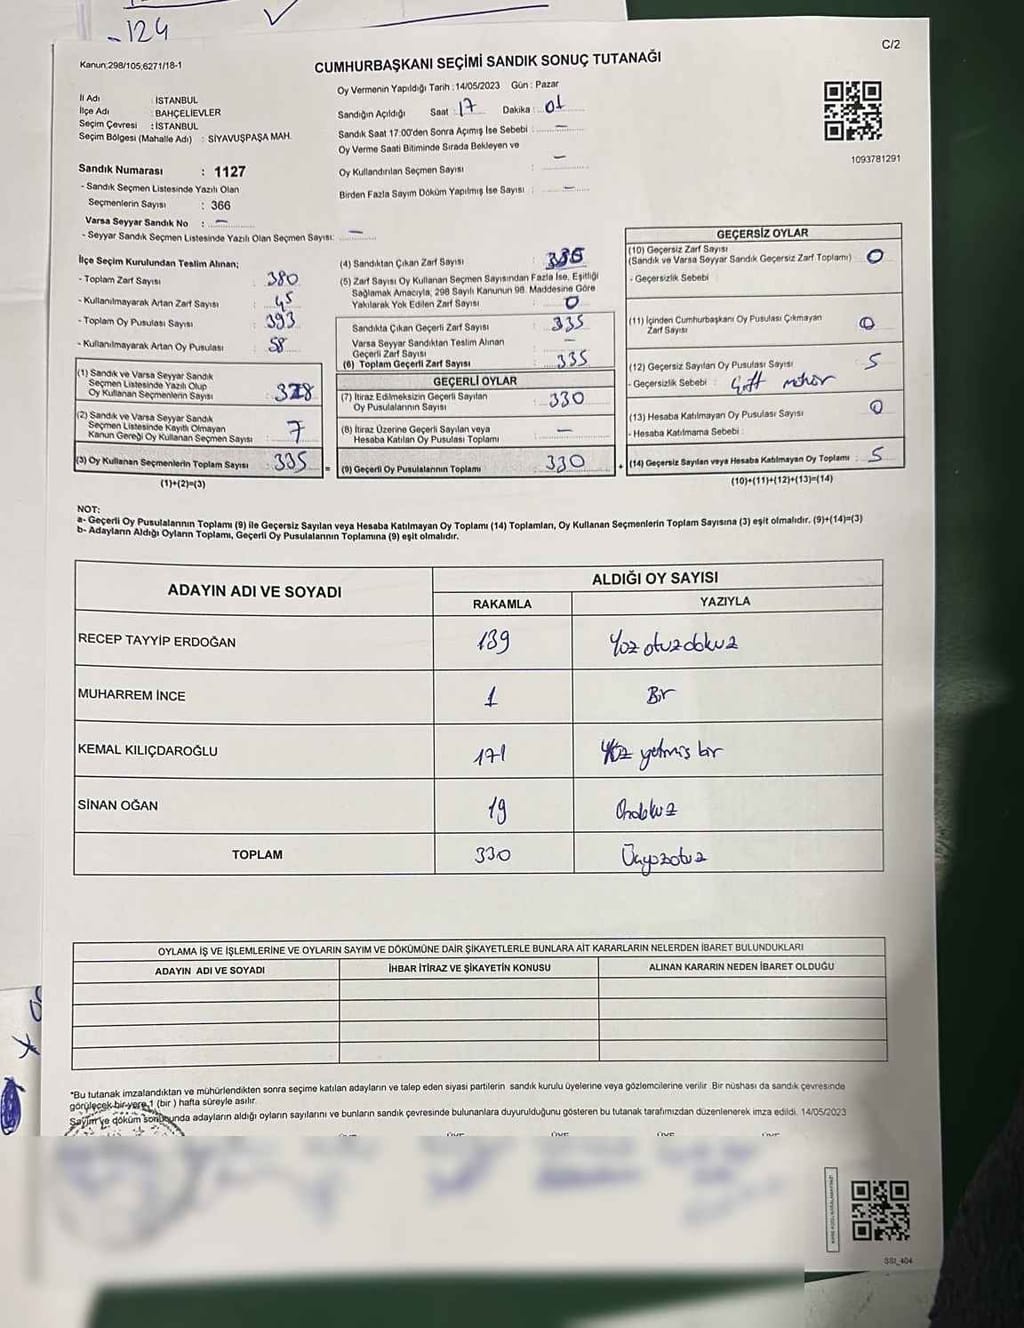 -124
Kanun;298/105,6271/18-1
C/2
CUMHURBAŞKANI SEÇİMİ SANDIK SONUÇ TUTANAĞI
İl Adı : İSTANBUL
İlçe Adı : BAHÇELİEVLER
Seçim Çevresi : İSTANBUL
Seçim Bölgesi (Mahalle Adı) : SİYAVUŞPAŞA MAH.
Sandık Numarası : 1127
- Sandık Seçmen Listesinde Yazılı Olan
Seçmenlerin Sayısı : 366
Varsa Seyyar Sandık No : -
- Seyyar Sandık Seçmen Listesinde Yazılı Olan Seçmen Sayısı: -
Oy Vermenin Yapıldığı Tarih :14/05/2023 Gün : Pazar
Sandığın Açıldığı Saat : 17 Dakika : 01
Sandık Saat 17.00'den Sonra Açımış İse Sebebi : -
Oy Verme Saati Bitiminde Sırada Bekleyen ve
Oy Kullandırılan Seçmen Sayısı : -
Birden Fazla Sayım Döküm Yapılmış İse Sayısı : -
1093781291
İlçe Seçim Kurulundan Teslim Alınan;
- Toplam Zarf Sayısı : 380
- Kullanılmayarak Artan Zarf Sayısı : 45
- Toplam Oy Pusulası Sayısı : 393
- Kullanılmayarak Artan Oy Pusulası : 58
(1) Sandık ve Varsa Seyyar Sandık
Seçmen Listesinde Yazılı Olup
Oy Kullanan Seçmenlerin Sayısı : 328
(2) Sandık ve Varsa Seyyar Sandık
Seçmen Listesinde Kayıtlı Olmayan
Kanun Gereği Oy Kullanan Seçmen Sayısı : 7
(3) Oy Kullanan Seçmenlerin Toplam Sayısı : 335
(1)+(2)=(3)
(4) Sandıktan Çıkan Zarf Sayısı : 335
(5) Zarf Sayısı Oy Kullanan Seçmen Sayısından Fazla İse, Eşitliği
Sağlamak Amacıyla; 298 Sayılı Kanunun 98. Maddesine Göre
Yakılarak Yok Edilen Zarf Sayısı : 0
Sandıkta Çıkan Geçerli Zarf Sayısı : 335
Varsa Seyyar Sandıktan Teslim Alınan
Geçerli Zarf Sayısı : -
(6) Toplam Geçerli Zarf Sayısı : 335
GEÇERLİ OYLAR
(7) İtiraz Edilmeksizin Geçerli Sayılan
Oy Pusulalarının Sayısı : 330
(8) İtiraz Üzerine Geçerli Sayılan veya
Hesaba Katılan Oy Pusulası Toplamı : -
= (9) Geçerli Oy Pusulalarının Toplamı : 330
GEÇERSİZ OYLAR
(10) Geçersiz Zarf Sayısı
(Sandık ve Varsa Seyyar Sandık Geçersiz Zarf Toplamı) : 0
- Geçersizlik Sebebi
(11) İçinden Cumhurbaşkanı Oy Pusulası Çıkmayan
Zarf Sayısı : 0
(12) Geçersiz Sayılan Oy Pusulası Sayısı : 5
- Geçersizlik Sebebi : Çift mühür
(13) Hesaba Katılmayan Oy Pusulası Sayısı : 0
- Hesaba Katılmama Sebebi :
+ (14) Geçersiz Sayılan veya Hesaba Katılmayan Oy Toplamı : 5
(10)+(11)+(12)+(13)=(14)
NOT:
a- Geçerli Oy Pusulalarının Toplamı (9) ile Geçersiz Sayılan veya Hesaba Katılmayan Oy Toplamı (14) Toplamları, Oy Kullanan Seçmenlerin Toplam Sayısına (3) eşit olmalıdır. (9)+(14)=(3)
b- Adayların Aldığı Oyların Toplamı, Geçerli Oy Pusulalarının Toplamına (9) eşit olmalıdır.
ADAYIN ADI VE SOYADI ALDIĞI OY SAYISI
RAKAMLA YAZIYLA
RECEP TAYYİP ERDOĞAN 139 Yüz otuzdokuz
MUHARREM İNCE 1 Bir
KEMAL KILIÇDAROĞLU 171 Yüz yetmiş bir
SİNAN OĞAN 19 Ondokuz
TOPLAM 330 Üçyüzotuz
OYLAMA İŞ VE İŞLEMLERİNE VE OYLARIN SAYIM VE DÖKÜMÜNE DAİR ŞİKAYETLERLE BUNLARA AİT KARARLARIN NELERDEN İBARET BULUNDUKLARI
ADAYIN ADI VE SOYADI İHBAR İTİRAZ VE ŞİKAYETİN KONUSU ALINAN KARARIN NEDEN İBARET OLDUĞU
*Bu tutanak imzalandıktan ve mühürlendikten sonra seçime katılan adayların ve talep eden siyasi partilerin sandık kurulu üyelerine veya gözlemcilerine verilir. Bir nüshası da sandık çevresinde
görülecek bir yere 1 (bir ) hafta süreyle asılır.
Sayım ve döküm sonucunda adayların aldığı oyların sayılarını ve bunların sandık çevresinde bulunanlara duyurulduğunu gösteren bu tutanak tarafımızdan düzenlenerek imza edildi. 14/05/2023
SSI_404